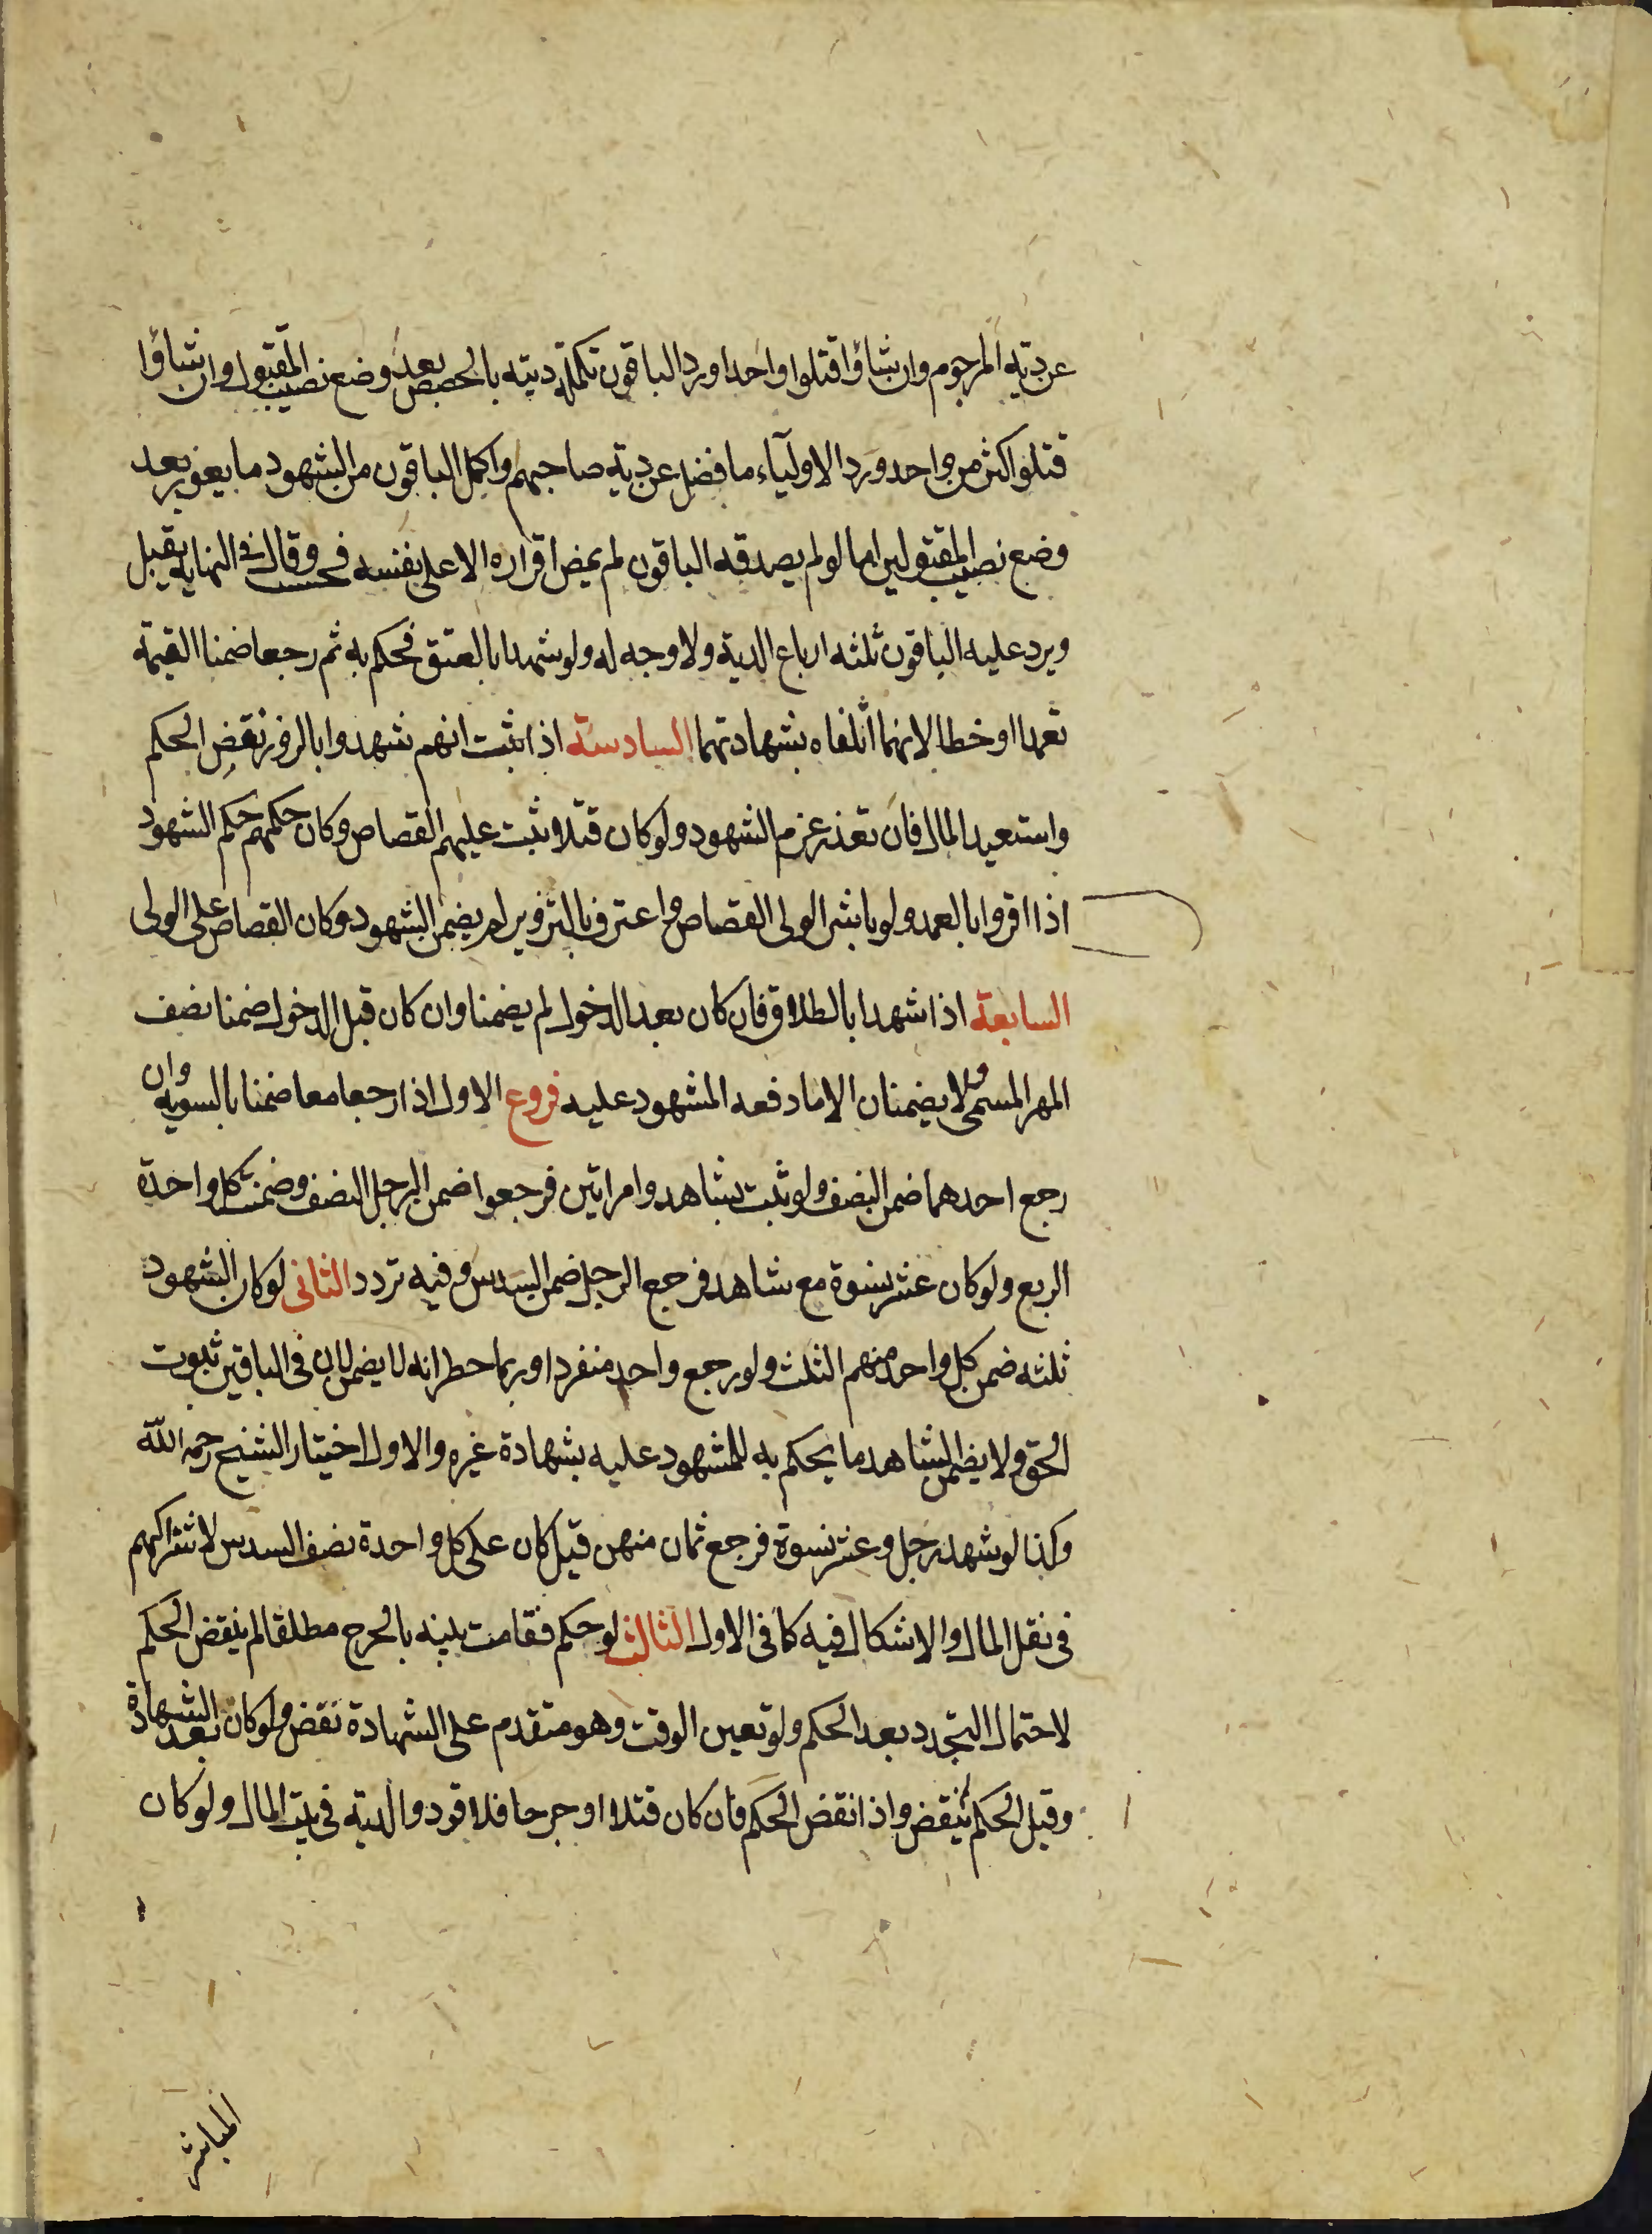 عن دية المرجوم وان شاؤا قتلوا واحدا ورد الباقون تكملة ديته بالحصص بعد وضع نصيب المقتول وان شاؤا
قتلوا اكثر من واحد ورد الاولياء ما فضل عن دية صاحبهم واكمل الباقون من الشهود ما يعوز بعد
وضع نصيب المقتولين اما لو لم يصدقه الباقون لم يمض اقراره الا على نفسه فحسب وقال في النهاية يقبل
ويرد عليه الباقون ثلثه ارباع الدية ولا وجه له ولو شهدا بالعتق فحكم به ثم رجعا ضمنا القيمة
تعمدا او خطا لانهما اتلفاه بشهادتهما السادسة اذا ثبت انهم شهدوا بالزور نقض الحكم
واستعيد المال فان تعذر غرم الشهود ولو كان قتلا ثبت عليهم القصاص وكان حكمهم حكم الشهود
اذا اقروا بالعمد ولو باشر الولى القصاص واعترف بالتزوير لم يضمن الشهود وكان القصاص على الولى
السابعة اذا شهدا بالطلاق فان كان بعد الدخول لم يضمنا وان كان قبل الدخول ضمنا نصف
المهر المسمى ولا يضمنان الا ما دفعه المشهود عليه فروع الاول اذا رجعا معا ضمنا بالسوية وان
رجع احدهما ضمن النصف ولو ثبت بشاهد وامراتين فرجعوا ضمن الرجل النصف وضمنت كل واحدة
الربع ولو كان عشر نسوة مع شاهد فرجع الرجل ضمن السدس وفيه تردد الثانى لو كان الشهود
ثلثه ضمن كل واحد منهم الثلث ولو رجع واحد منفردا وربما خطر انه لا يضمن لان فى الباقين ثبوت
الحق ولا يضمن الشاهد ما يحكم به للمشهود عليه بشهادة غيره والاول اختيار الشيخ رحمه الله
وكذا لو شهد رجل وعشر نسوة فرجع ثمان منهن قيل كان على كل واحدة نصف السدس لاشتراكهم
فى نقل المال والاشكال فيه كما فى الاول الثالث لو حكم فقامت بينه بالجرح مطلقا لم ينقض الحكم
لاحتمال التجدد بعد الحكم ولو تعين الوقت وهو متقدم على الشهادة نقض ولو كان بعد الشهادة
وقبل الحكم لم ينقض واذا نقض الحكم فان كان قتلا او جرحا فلا قود والدية فى بيت المال ولو كان
المباشر